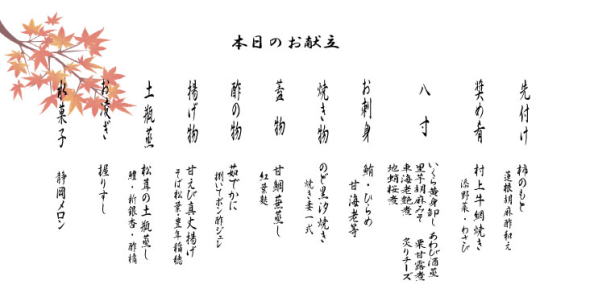 本日のお献立
先付け
柿のもと
蓮根胡麻酢和え
奨め肴
村上牛網焼き
添野菜・わさび
八寸
いくら黄身卸し あわび酒蒸
里芋胡麻みそ 栗甘露煮
車海老艶煮 炙りチーズ
地蛸桜煮
お刺身
鮪・ひらめ
甘海老等
焼き物
のど黒汐焼き
焼き妻一式
蓋物
甘鯛蕪蒸し
紅葉麩
酢の物
茹ずわ
揚げ物
甘えび真丈揚げ
そば松葉・豊年稲穂
土瓶蒸
松茸の土瓶蒸し
鱧・新銀杏・酢橘
お凌ぎ
握りすし
水菓子
静岡メロン